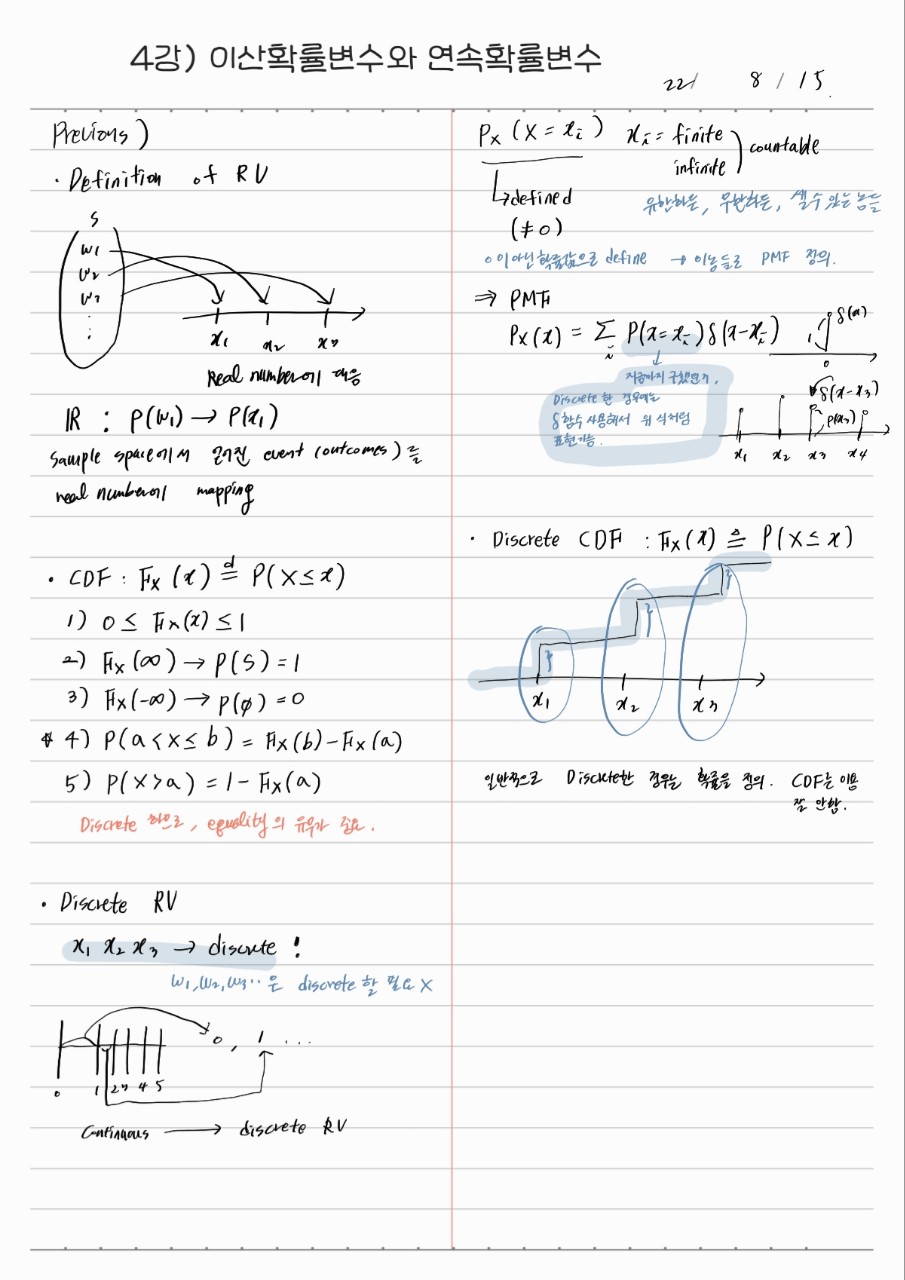 4강) 이산확률변수와 연속확률변수
22/ 8/15.
Previous)
· Definition of RV
S
w1
w2
w3
x1 x2 x3
Real number에 대응
IR : P(w1) → P(x1)
Sample space에서 얻어진 event (outcomes)를
real number에 mapping
· CDF : Fx(x) ≜ P(X≤x)
1) 0 ≤ Fx(x) ≤ 1
2) Fx(∞) → P(S) = 1
3) Fx(-∞) → P(ø) = 0
4) P(a<x≤b) = Fx(b) - Fx(a)
5) P(X>a) = 1 - Fx(a)
Discrete 하므로, equality의 유무가 중요.
· Discrete RV
x1 x2 x3 → discrete !
w1, w2, w3·· 은 discrete 할 필요 X
0 , 1 ...
0 1 2 3 4 5
Continuous → discrete RV
Px (X = xi) xi = finite
infinite
) countable
↳ defined
(≠0)
유한하든, 무한하든, 셀 수 있는 놈들
0이 아닌 확률값으로 define → 이놈들로 PMF 정의.
⇒ PMF
Px(x) = Σi P(x=xi) δ(x-xi)
δ(x)
1
0
지금까지 구했던거.
Discrete한 경우에는
δ함수 사용해서 위 식처럼
표현가능.
δ(x-x3)
P(x3)
x1 x2 x3 x4
· Discrete CDF : Fx(x) ≜ P(X≤x)
x1 x2 x3
일반적으로 Discrete한 경우는 확률을 정의. CDF는 이용
잘 안함.